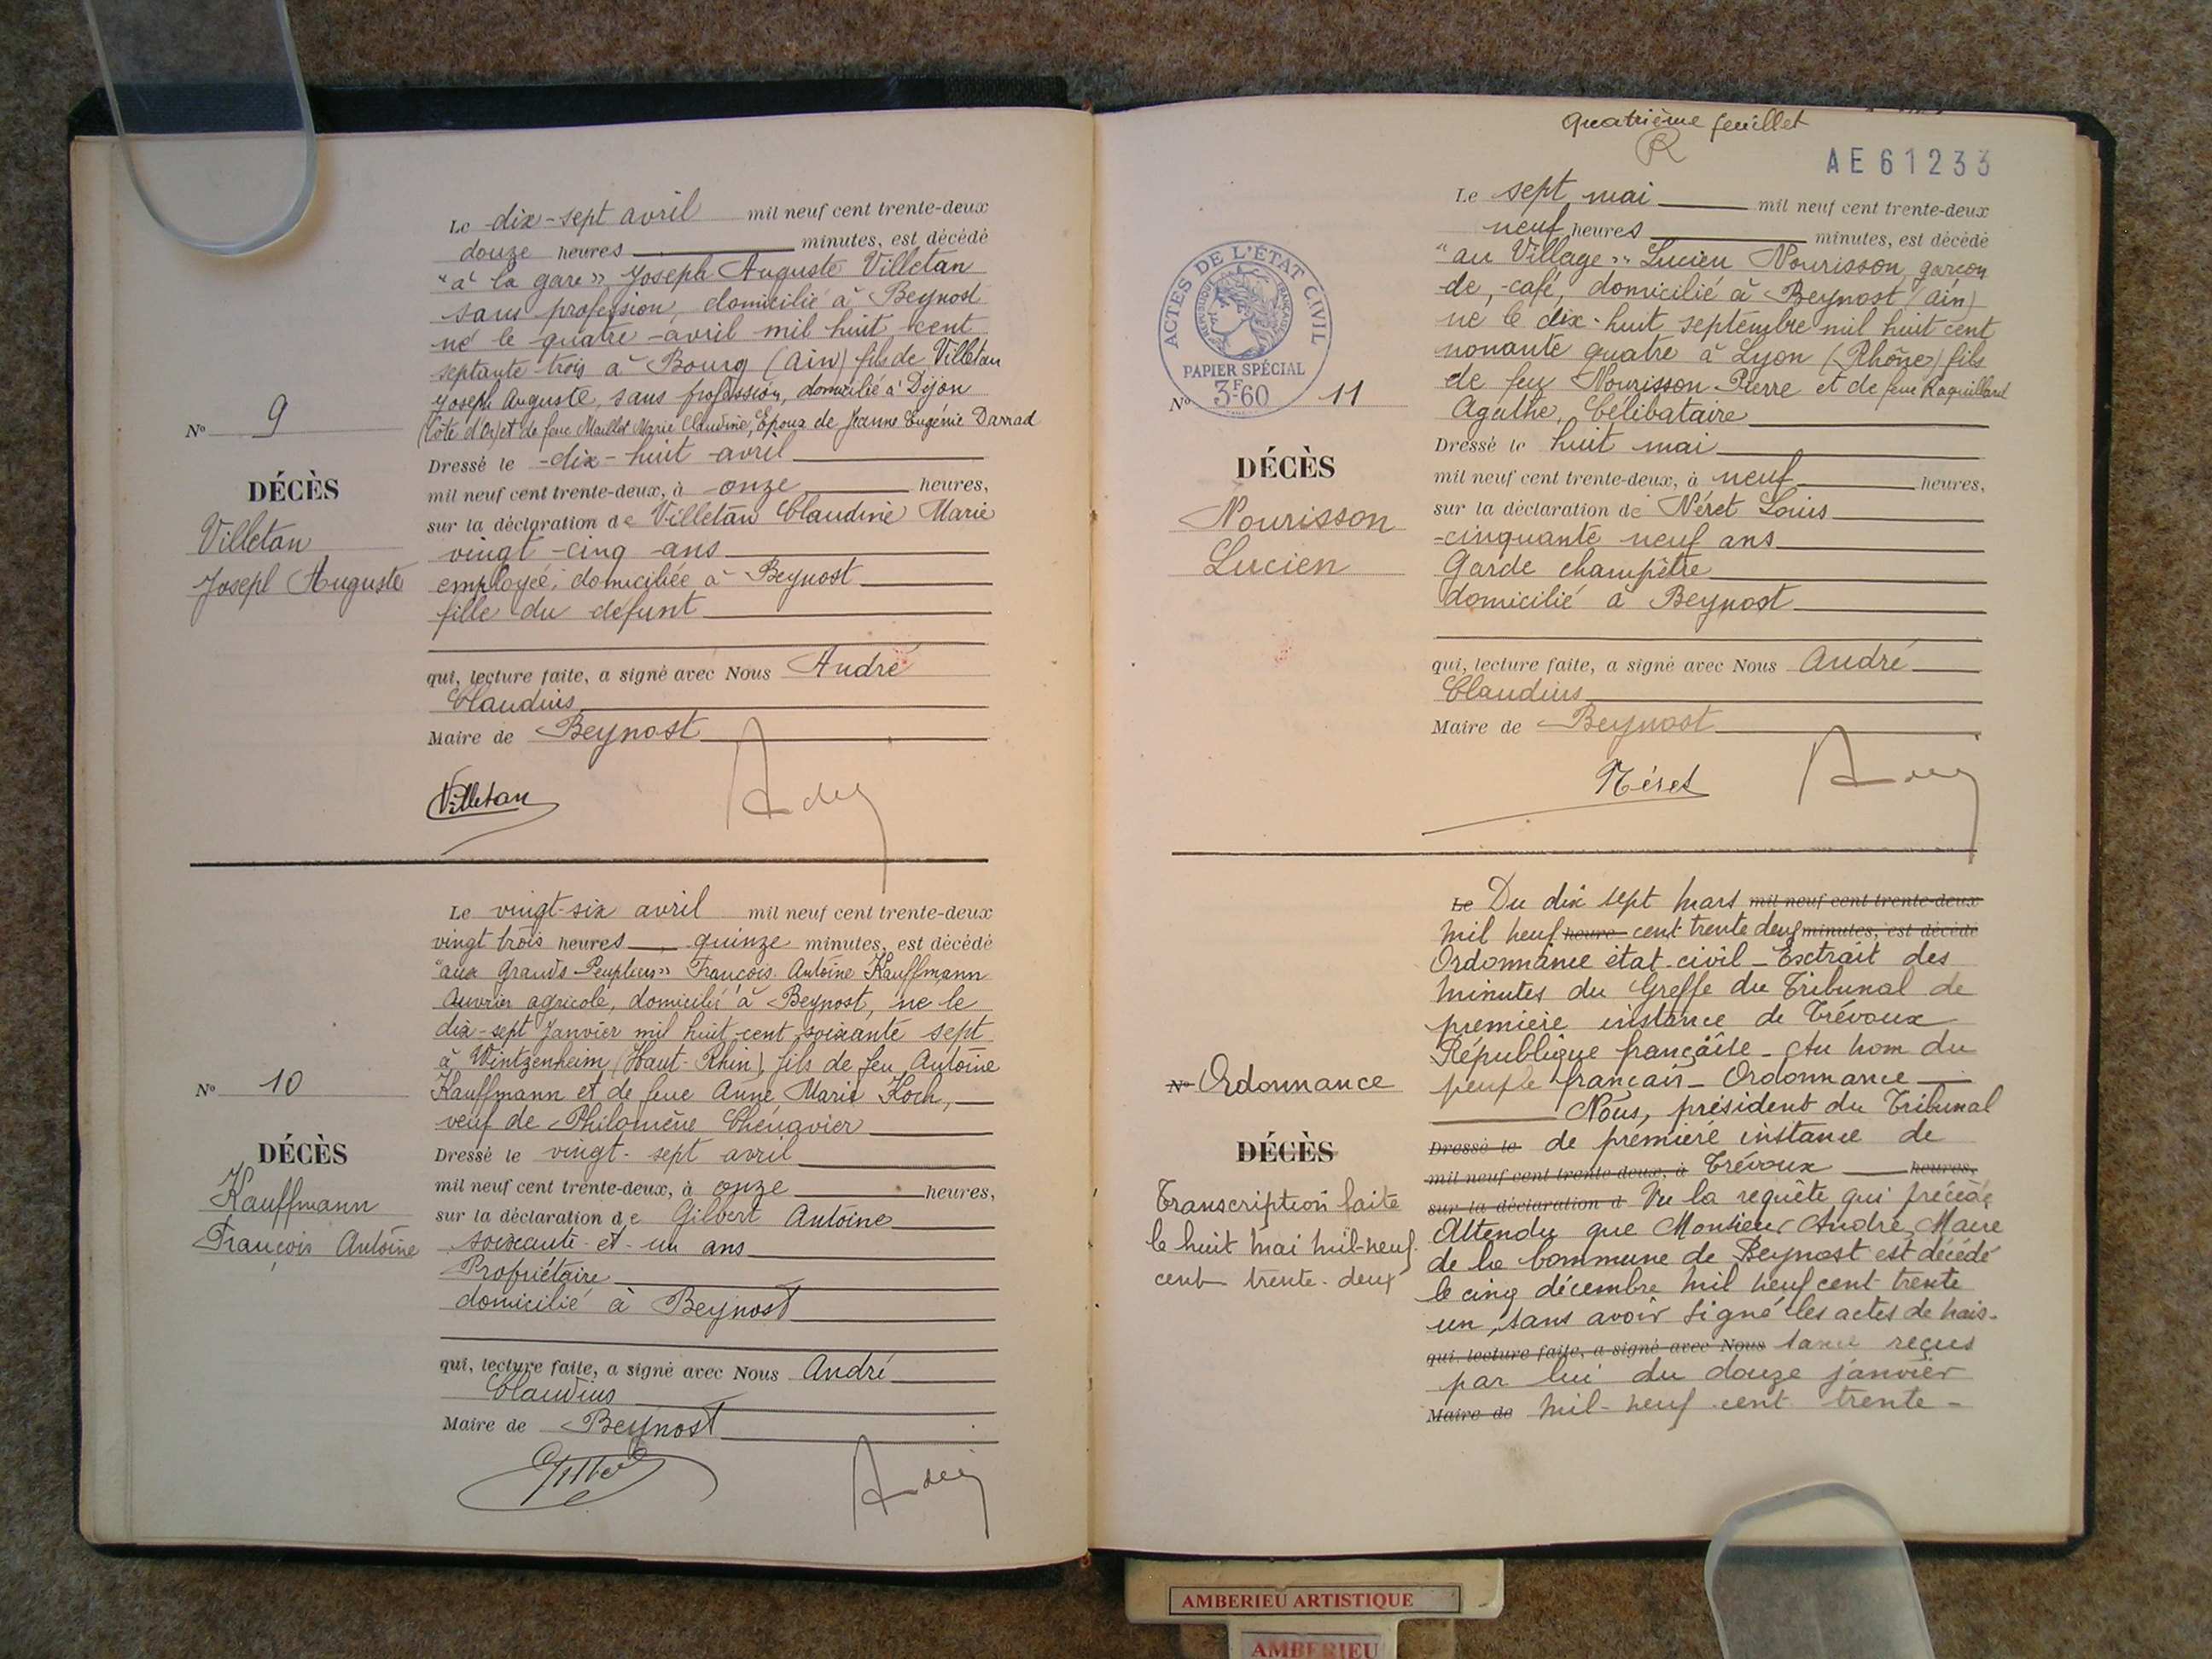 Le dix-sept avril mil neuf cent trente-deux
douze heures minutes, est décédé
"à la gare" Joseph Auguste Villetan
sans profession, domicilié à Beynost
né le quatre avril mil huit cent
septante-trois à Bourg (Ain) fils de Villetan
Joseph Auguste, sans profession, domicilié à Dijon
(Côte d'Or) et de feue Maillot Marie Claudine, Epoux de Jeanne Eugénie Darrad
N° 9
DÉCÈS
Villetan
Joseph Auguste
Dressé le dix-huit avril
mil neuf cent trente-deux, à onze heures,
sur la déclaration de Villetan Claudine Marie
vingt-cinq ans
employée, domiciliée à Beynost
fille du defunt
qui, lecture faite, a signé avec Nous André
Claudius
Maire de Beynost
Villetan
Le vingt-six avril mil neuf cent trente-deux
vingt trois heures, quinze minutes, est décédé
"aux Grands Peupliers" François Antoine Kauffmann
Ouvrier agricole, domicilié à Beynost, né le
dix-sept Janvier mil huit cent soixante sept
à Wintzenheim (Haut-Rhin), fils de feu Antoine
Kauffmann et de feue Anne Marie Koch,
veuf de Philomène Chénavier
N° 10
DÉCÈS
Kauffmann
François Antoine
Dressé le vingt-sept avril
mil neuf cent trente-deux, à onze heures,
sur la déclaration de Gilbert Antoine
soixante-et-un ans
Propriétaire
domicilié à Beynost
qui, lecture faite, a signé avec Nous André
Claudius
Maire de Beynost
Quatrième feuillet
AE61233
Le sept mai mil neuf cent trente-deux
neuf heures minutes, est décédé
"au Village" Lucien Nourisson, garçon
de café, domicilié à Beynost (Ain)
né le dix-huit septembre mil huit cent
nonante quatre à Lyon (Rhône) fils
de feu Nourisson Pierre et de feue Raquillard
Agathe, Célibataire
ACTES DE L'ÉTAT CIVIL
RÉPUBLIQUE FRANÇAISE
PAPIER SPÉCIAL
3F60
N° 11
DÉCÈS
Nourisson
Lucien
Dressé le huit mai
mil neuf cent trente-deux, à neuf heures,
sur la déclaration de Néret Louis
cinquante neuf ans
Garde champêtre
domicilié à Beynost
qui, lecture faite, a signé avec Nous André
Claudius
Maire de Beynost
Néret
Le Du dix sept mars mil neuf cent trente-deux
mil neuf heure cent trente deux minutes, est décédé
Ordonnance état-civil - Extrait des
minutes du Greffe du Tribunal de
première instance de Trévoux
République française - Au nom du
peuple français - Ordonnance
Nous, président du Tribunal
N° Ordonnance
DÉCÈS
Transcription faite
le huit mai mil-neuf-
cent trente-deux
Dressé le de première instance de
mil neuf cent trente-deux, à Trévoux heures,
sur la déclaration d Vu la requête qui précède
Attendu que Monsieur André Maire
de la Commune de Beynost est décédé
le cinq décembre mil neuf cent trente
un, sans avoir signé les actes de nais-
qui, lecture faite, a signé avec Nous sance reçus
par lui du douze janvier
Maire de mil-neuf cent trente-
AMBERIEU ARTISTIQUE
AMBERIEU